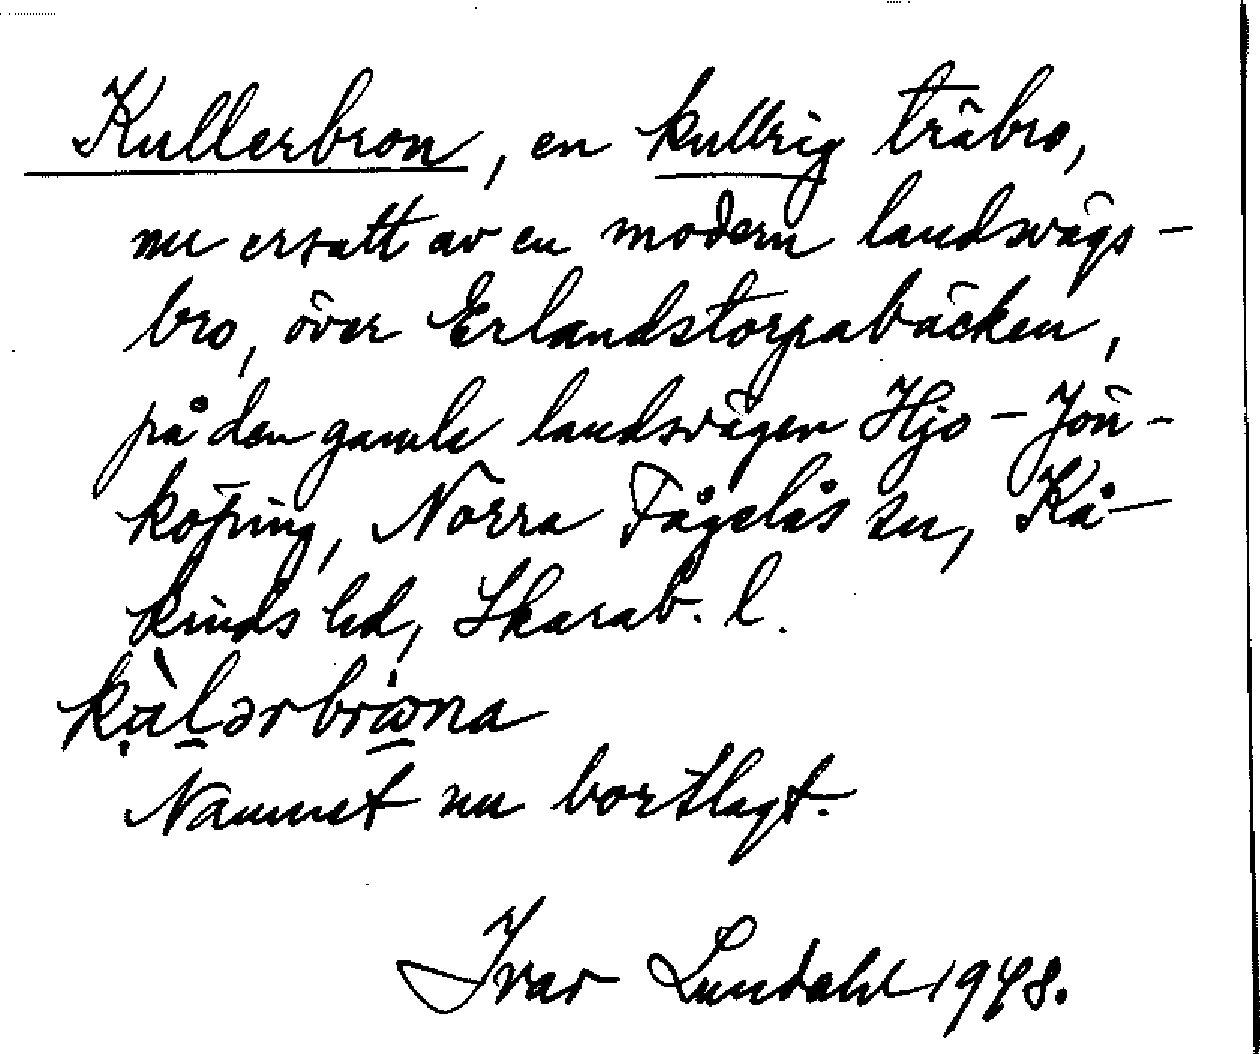 Kullerbron, en kullrig träbro,
nu ersatt av en modern landsvägs-
bro, över Erlandstorpabäcken,
på den gamla landsvägen Hjo - Jön-
köping, Norra Fågelås sn, Kå-
kinds hd, Skarab. l.
Namnet nu bortlagt.
Ivar Lundahl 1948.